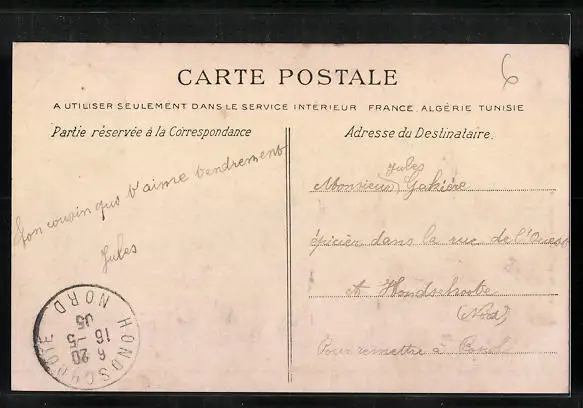 6
CARTE POSTALE
A UTILISER SEULEMENT DANS LE SERVICE INTÉRIEUR FRANCE, ALGÉRIE TUNISIE
Partie réservée à la Correspondance
Ton cousin qui t'aime tendrement
Jules
Adresse du Destinataire.
Jules
Monsieur
épicier dans la rue de l'Ouest
A Hondschoote
(Nord)
Pour remettre à
HONDSCHOOTE
6 20
16 -5
05
NORD